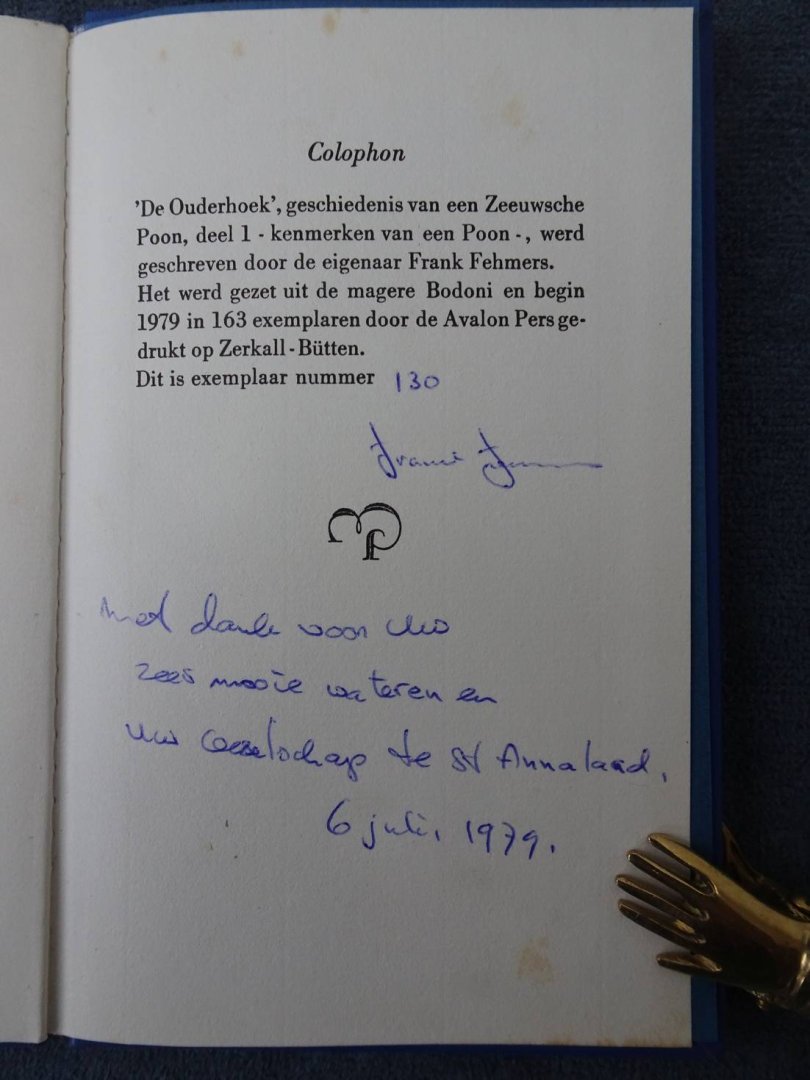 Colophon
'De Ouderhoek', geschiedenis van een Zeeuwsche
Poon, deel 1 - kenmerken van een Poon -, werd
geschreven door de eigenaar Frank Fehmers.
Het werd gezet uit de magere Bodoni en begin
1979 in 163 exemplaren door de Avalon Pers ge-
drukt op Zerkall-Bütten.
Dit is exemplaar nummer 130
AP
met dank voor Uw
zeer mooie wateren en
uw te St Annaland,
6 juli, 1979.